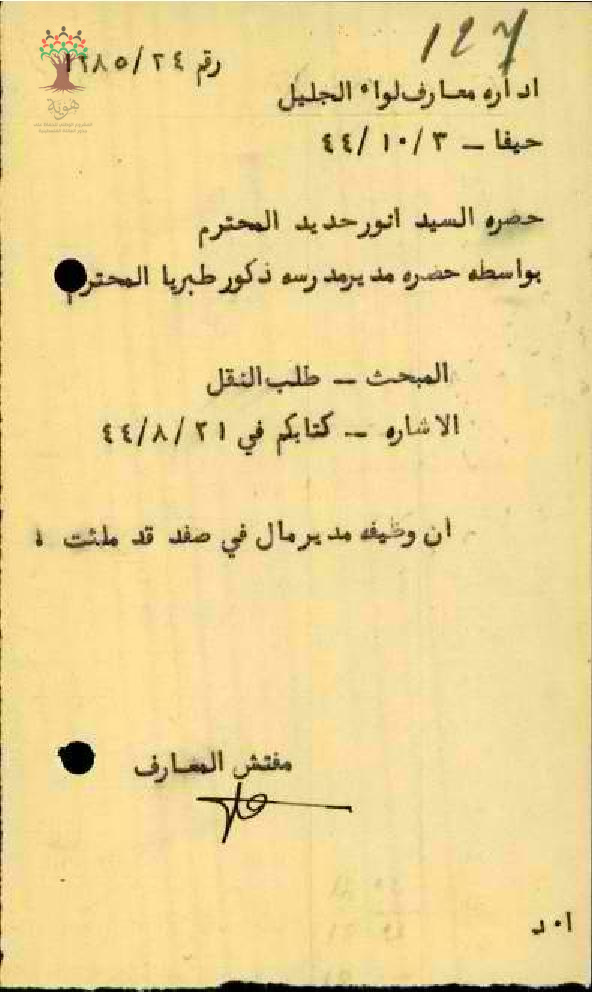 ١٢٧
رقم ١٦٨٥/٢٤
اداره معارف لواء الجليل
حيفا – ٤٤/١٠/٣
حضره السيد انور حديد المحترم
بواسطه حضره مدير مدرسه ذكور طبريا المحترم
المبحث – طلب النقل
الاشاره – كتابكم في ٤٤/٨/٢١
ان وظيفه مدير مال في صفد قد ملئت ،
مفتش المعارف
ا٠ د
هوية